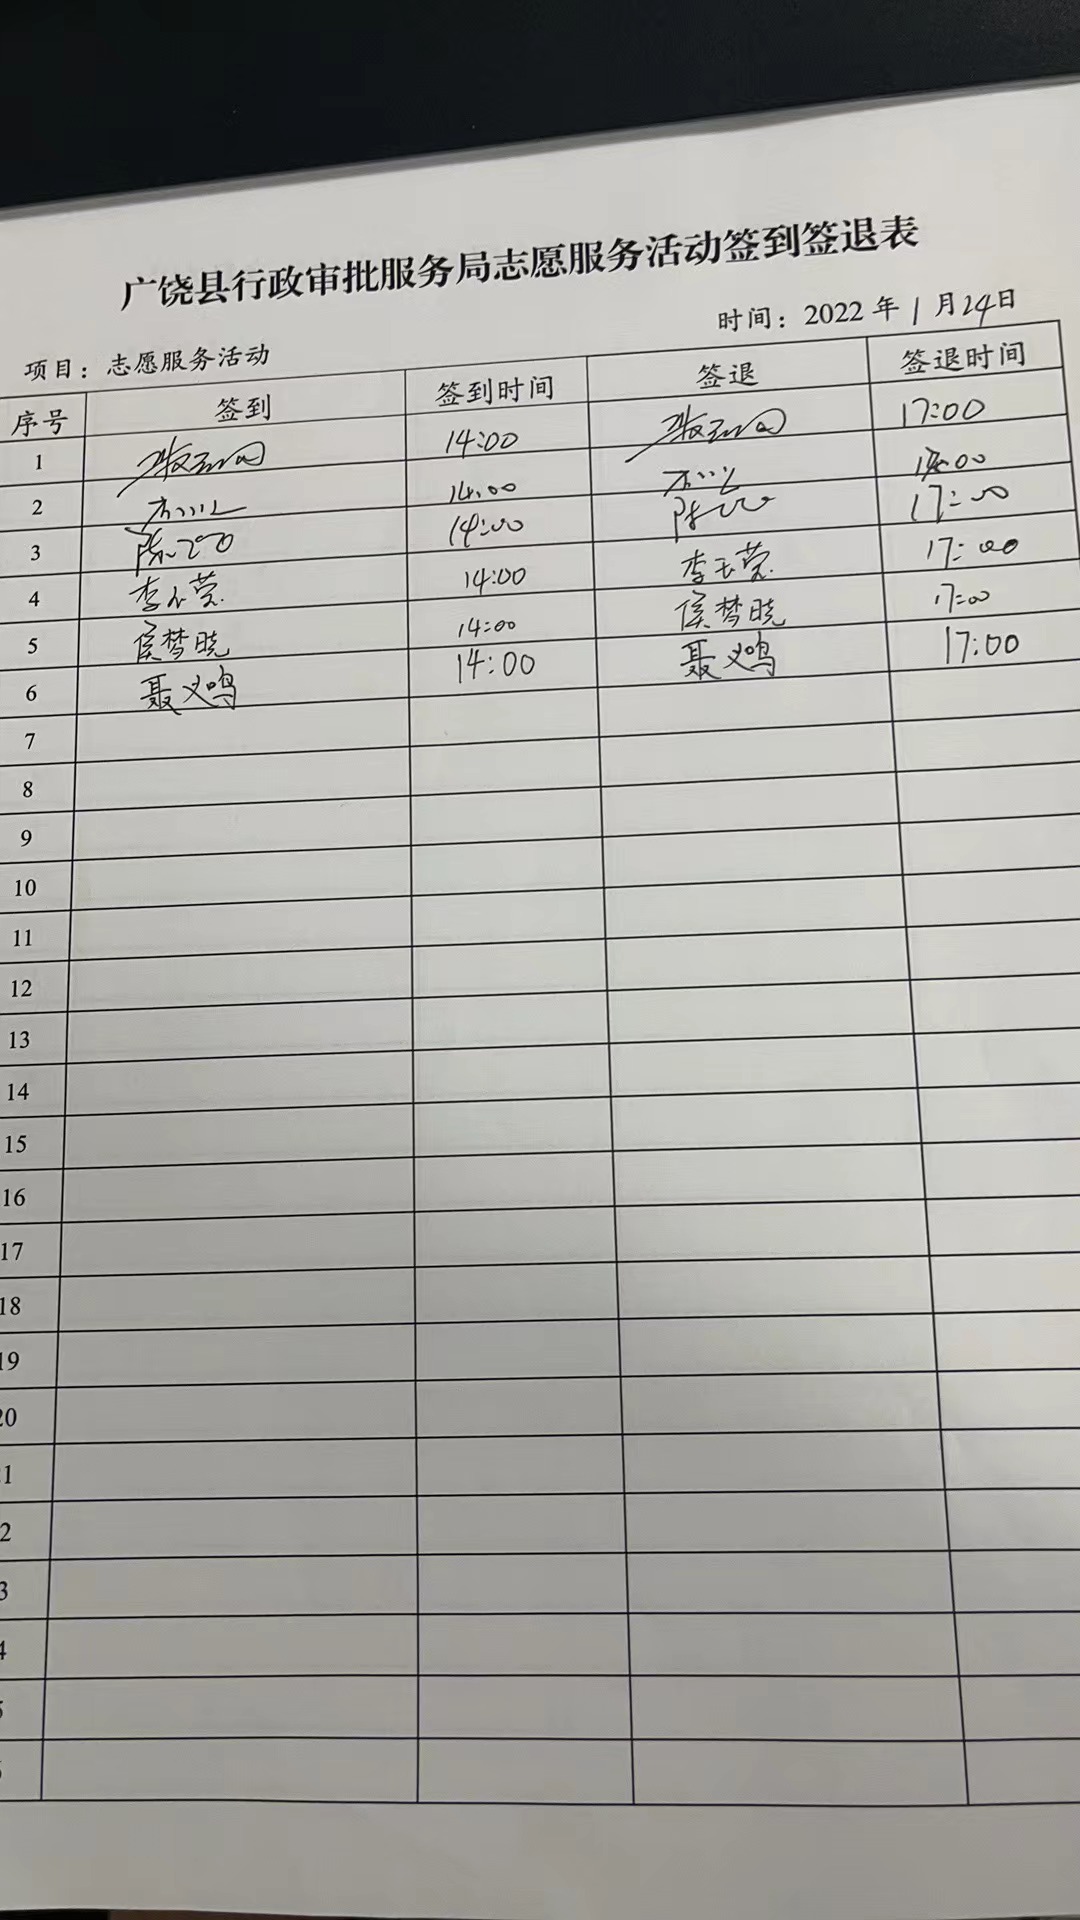 广饶县行政审批服务局志愿服务活动签到签退表
项目：志愿服务活动 时间：2022年1月24日
序号 签到 签到时间 签退 签退时间
1 14:00 17:00
2 14:00 17:00
3 14:00 17:00
4 李玉荣 14:00 李玉荣 17:00
5 侯梦晓 14:00 侯梦晓 17:00
6 聂义鸣 14:00 聂义鸣 17:00
7
8
9
10
11
12
13
14
15
16
17
18
19
20
1
2
3
4
5